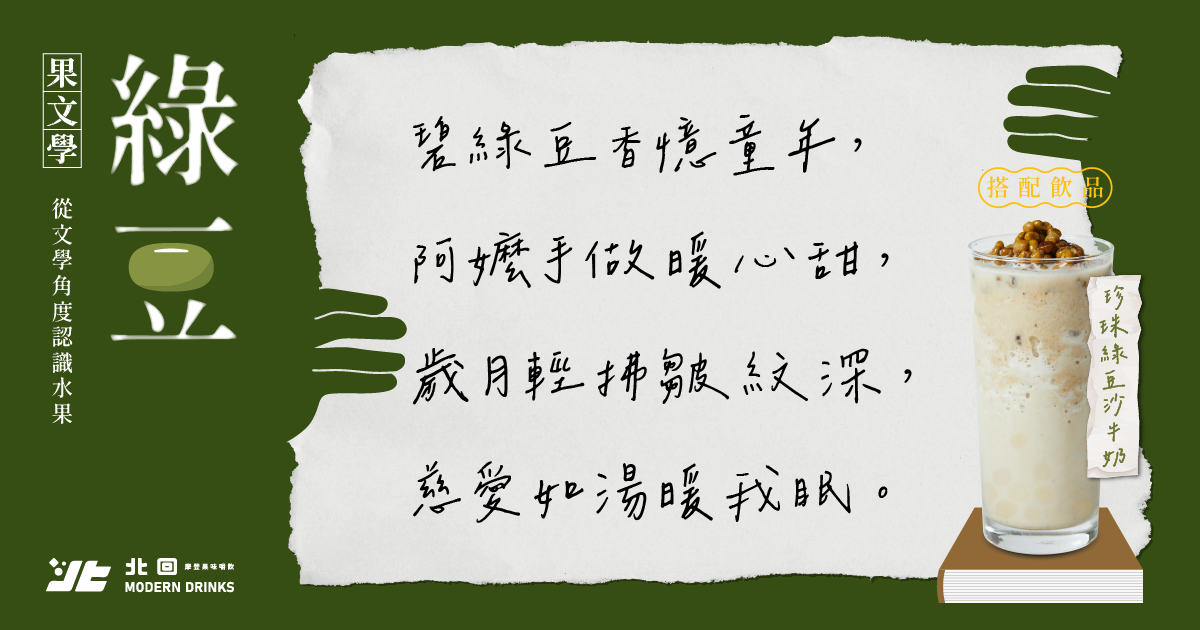 果文學
綠豆
從文學角度認識水果
碧綠豆香憶童年，
阿嬤手做暖心甜，
歲月輕拂皺紋深，
慈愛如湯暖我眠。
搭配飲品
珍珠綠豆沙牛奶
北回 摩登果味嚼飲
MODERN DRINKS